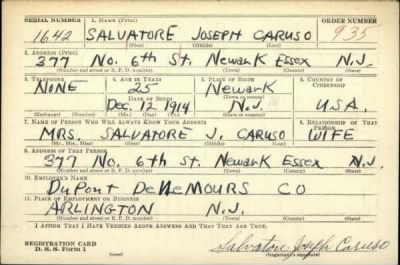 SERIAL NUMBER 1. NAME (Print) ORDER NUMBER
1642 SALVATORE JOSEPH CARUSO 935
(First) (Middle) (Last)
2. ADDRESS (Print)
377 No. 6th St. Newark Essex N.J.
(Number and street or R. F. D. number) (Town) (County) (State)
3. TELEPHONE 4. AGE IN YEARS 5. PLACE OF BIRTH 6. COUNTRY OF CITIZENSHIP
NONE 25 Newark
DATE OF BIRTH
Dec. 12 1914 N.J. U.S.A.
(Exchange) (Number) (Mo.) (Day) (Yr.) (State or country)
7. NAME OF PERSON WHO WILL ALWAYS KNOW YOUR ADDRESS 8. RELATIONSHIP OF THAT PERSON
MRS. SALVATORE J. CARUSO WIFE
(Mr., Mrs., Miss) (First) (Middle) (Last)
9. ADDRESS OF THAT PERSON
377 No. 6th St. Newark Essex N.J.
(Number and street or R. F. D. number) (Town) (County) (State)
10. EMPLOYER'S NAME
DuPont DeNeMOURS CO
11. PLACE OF EMPLOYMENT OR BUSINESS
ARLINGTON N.J.
(Number and street or R. F. D. number) (Town) (County) (State)
I AFFIRM THAT I HAVE VERIFIED ABOVE ANSWERS AND THAT THEY ARE TRUE.
REGISTRATION CARD
D. S. S. Form 1
Salvatore Joseph Caruso
(Registrant's signature)